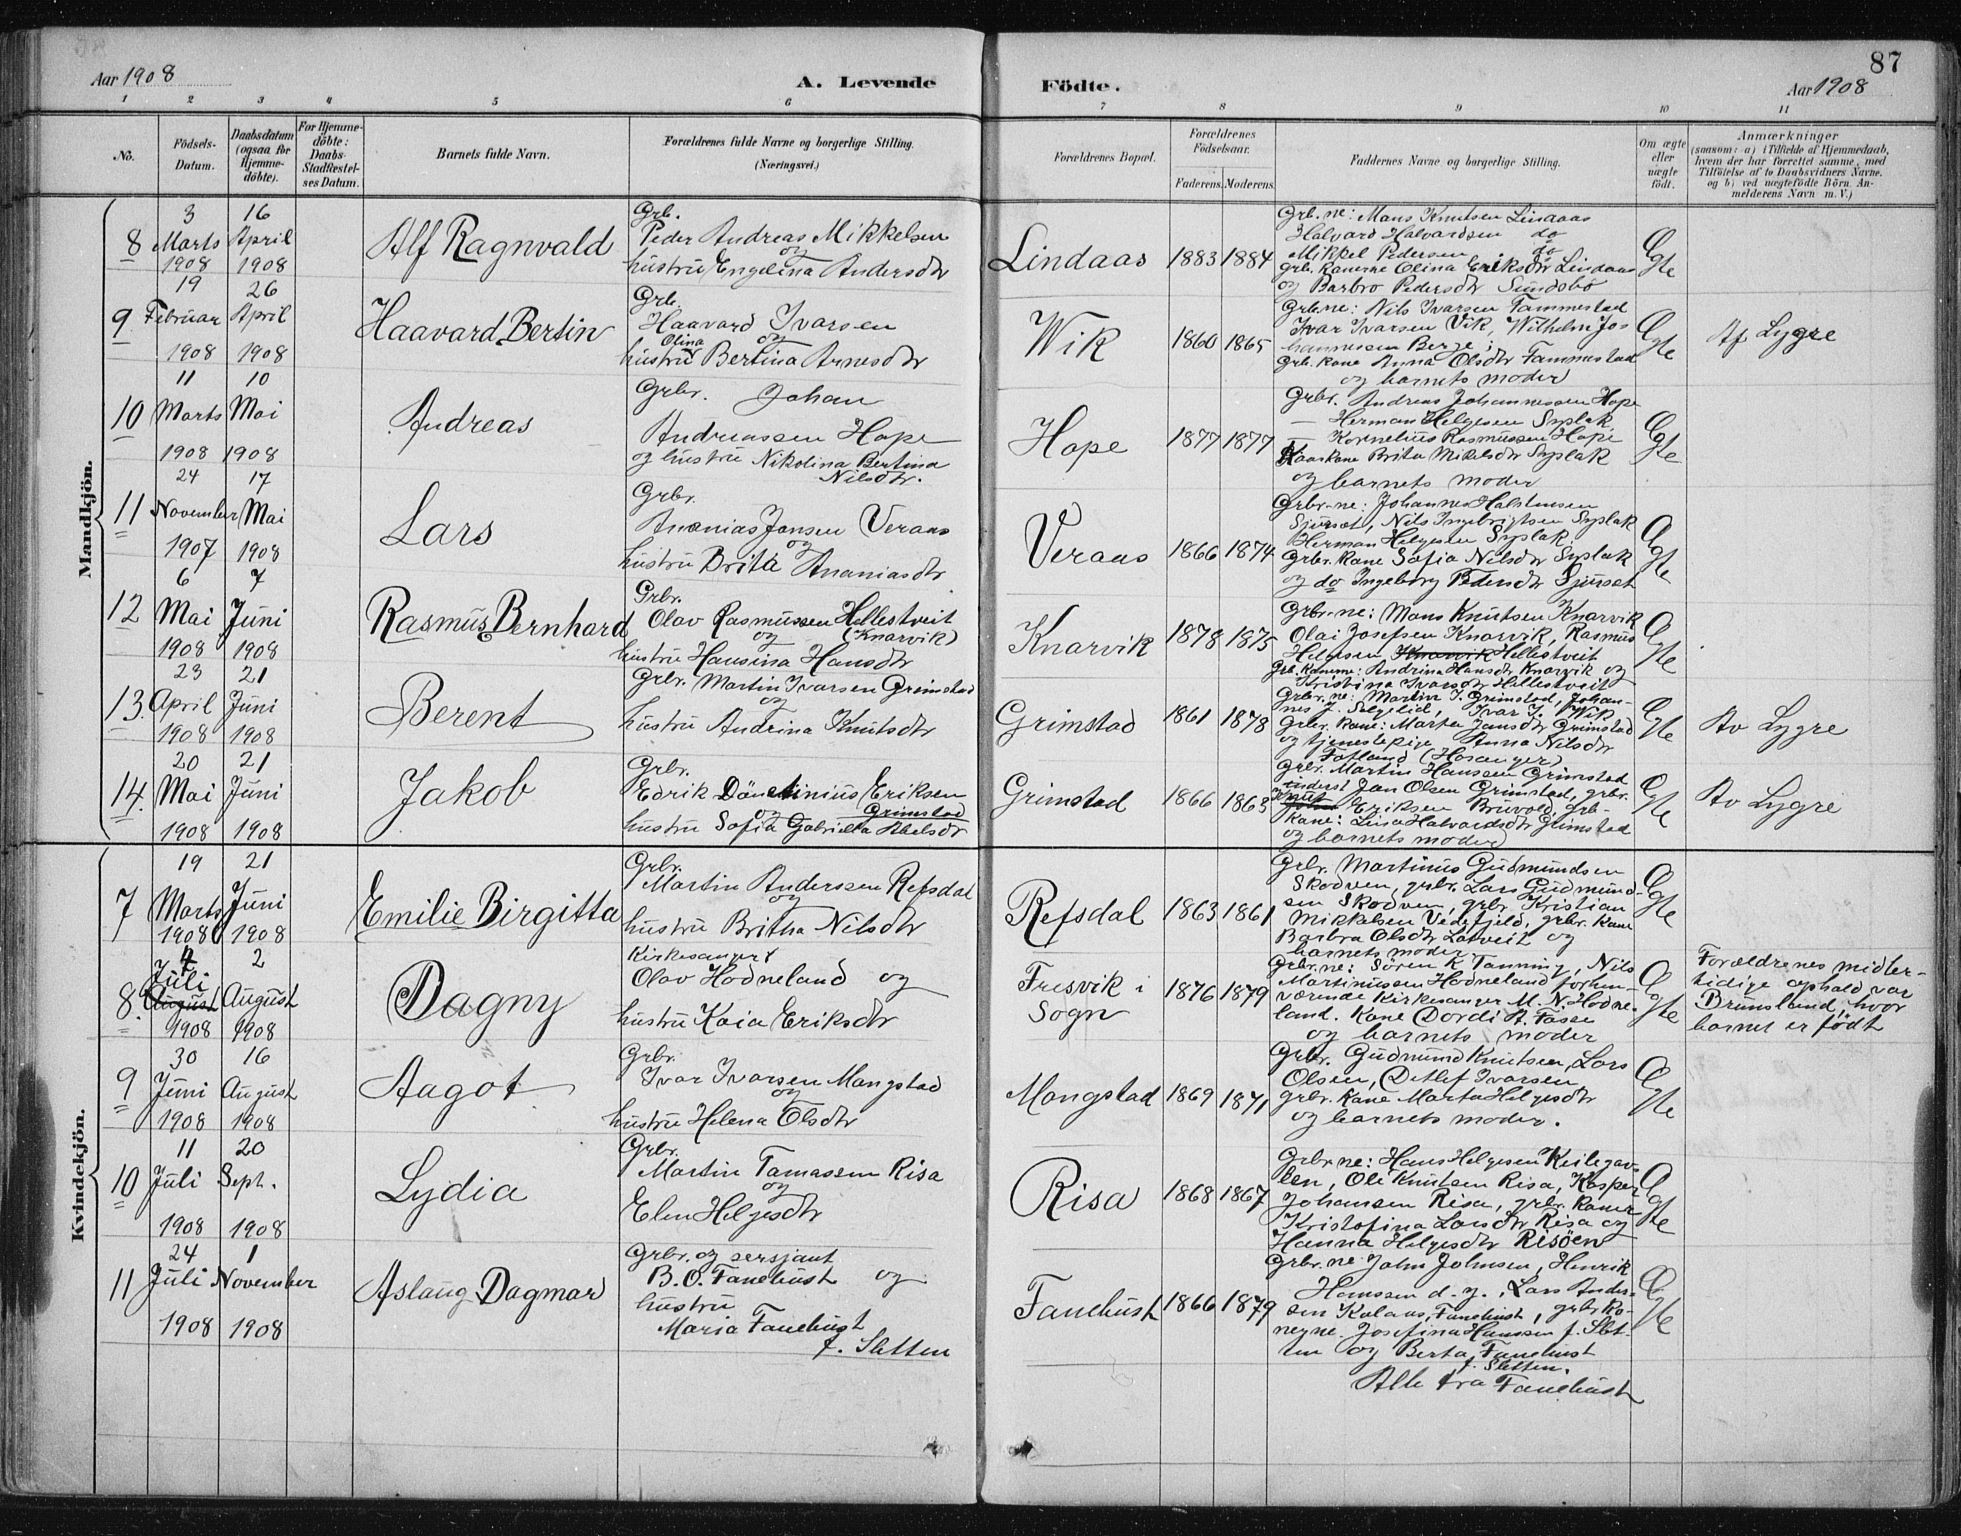 87
Aar 1908
A. Levende Födte.
Aar 1908
1 2 3 4 5 6 7 8 9 10 11
No.
Födsels-Datum.
Daabsdatum (ogsaa for Hjemme-döbte).
For Hjemme-döbte: Daabs-Stadfæstel-ses Datum.
Barnets fulde Navn.
Forældrenes fulde Navne og borgerlige Stilling. (Næringsvei.)
Forældrenes Bopæl.
Forældrenes Födselsaar.
Faderens. Moderens.
Faddernes Navne og borgerlige Stilling.
Om ægte eller uægte födt.
Anmærkninger
(saasom: a) i Tilfælde af Hjemmedaab,
hvem der har forrettet samme, med
Tilföielse af to Daabsvidners Navne.
og b) ved uægtefödte Börn, An-
melderens Navn m. V.)
Mandkjön.
8
3 Marts 1908
16 April 1908
Alf Ragnvald
Grb.
Peder Andreas Mikkelsen
og
hustru Engelina Andersdtr
Lindaas
1883 1884
Grb.ne: Mons Knutsen Lindaas
Halvard Halvardsen do
Mikkel Pedersen do
grb. kanerne Olina Eriksdtr Lindaas
og Barbro Pedersdtr Sundsbö
Ægte
9
19 Februar 1908
26 April 1908
Haavard Bertin
Grb.
Haavard Ivarsen
Olina og
hustru Bertina Arnesdtr
Wik
1860 1865
Grb.ne: Nils Ivarsen Fammestad
Ivar Ivarsen Vik, Wilhelm Jo-
hannesen Berge;
Grb. kane Anna Olsdtr Fammestad
og barnets moder
Ægte
Af Lygre
10
11 Marts 1908
10 Mai 1908
Andreas
Grbr. Johan
Andreassen Hope
og hustru Nikolina Bertina
Nilsdtr.
Hope
1877 1877
Grbr. Andreas Johannessen Hope
— Herman Helgesen Syslak
— Kornelius Rasmussen Hope
kaarkane Brita Mikelsdtr Syslak
og barnets moder
Ægte
11
24 November 1907
17 Mai 1908
Lars
Grbr.
Ananias Jansen Veraas
og
hustru Brita Ananiasdtr
Veraas
1866 1874
Grbr.ne: Johannes Halstensen
Sjurset, Nils Ingebrigtsen Syslak
Herman Helgesen Syslak,
Grbr. kane Sofia Nilsdtr Syslak
og do Ingeborg Pedersdtr Sjurset
Ægte
12
6 Mai 1908
7 Juni 1908
Rasmus Bernhard
Grbr.
Olav Rasmussen Hellestveit
og (Knarvik)
hustru Hansina Hansdtr
Knarvik
1878 1875
Grbr.ne: Mons Knutsen Knarvik
Olai Josefsen Knarvik, Rasmus
Helgesen Knarvik Hellestveit
Grb. konene: Andrina Hansdtr Knarvik og
Kristina Ivarsdtr Hellestveit
Ægte
13.
23 April 1908
21 Juni 1908
Berent
Grbr. Martin Ivarsen Grimstad
og
hustru Andrina Knutsdtr
Grimstad
1861 1878
Grbr.ne: Martin J. Grimstad, Johan-
nes J. Selgelid, Ivar J. Wik
Grbr. kane: Marta Jansdtr Grimstad
og tjenestepige Anna Nilsdtr
Fotland (Hosanger)
Ægte
Av Lygre
14.
20 Mai 1908
21 Juni 1908
Jakob
Grbr.
Edrik Eriksen
og Grimstad
hustru Sofia Gabriella Abelsdtr
Grimstad
1866 1863
Grbr. Martin Hanssen Grimstad
inderst Jan Olsen Grimstad, grbr.
Knut Eriksen Bruvold, grb-
kane: Lisa Halvardsdtr Grimstad
og barnets moder
Ægte
Av Lygre
Kvindekjön.
7
19 Marts 1908
21 Juni 1908
Emilie Birgitta
Grbr.
Martin Anderssen Refsdal
og
hustru Britha Nilsdtr
Refsdal
1863 1861
Grbr. Martinus Gudmundsen
Skodven, grbr. Lars Gudmund-
sen Skodven, grbr. Kristian
Mikkelsen Vedefjeld, grbr. kane
Barbra Olsdtr Lotveit og
barnets moder
Ægte
8.
4 Juli August 1908
2 August 1908
Dagny
Kirkesanger
Olav Hodneland og
hustru Kaia Eriksdtr
Fresvik i
Sogn
1876 1879
Grbr.ne: Sören K Tanning, Nils
Martinussen Hodneland forhen-
værende Kirkesanger M. N. Hodne-
land. Kane Dordi A. Fosse
og barnets moder
Ægte
Forældrenes midler-
tidige ophald var
Brunsland, hvor
barnet er födt
9
30 Juni 1908
16 August 1908
Aagot
Grbr.
Ivar Ivarsen Mongstad
og
hustru Helena Olsdtr
Mongstad
1869 1871
Grbr. Gudmund Knutsen, Lars
Olsen, Detlef Ivarsen
grbr. kane Marta Helgesdtr
og barnets moder.
Ægte
10
11 Juli 1908
20 Sept. 1908
Lydia
Grbr.
Martin Tamassen Risa
og
Elen Helgesdtr
Risa
1868 1867
Grbr.ne: Hans Helgesen Keilegav-
len, Ole Knutsen Risa, Kasper
Johansen Risa, grbr. kaner
Kristofina Larsdtr Risa og
Hanna Helgesdtr Risöen
Ægte
11
24 Juli 1908
1 November 1908
Aslaug Dagmar
Grbr. og sersjant
B. O. Fanebust og
hustru
Maria Fanebust
f. Sletten
Fanebust
1866 1879
Grbr.ne John Johnsen, Henrik
Hanssen d. y., Lars Ander-
sen Kalaas, Fanebust, grbr. ko-
nene. Josefina Hanssen f. Slet-
ten og Berta Fanebust
f. Sletten.
Alle fra Fanebust
Ægte